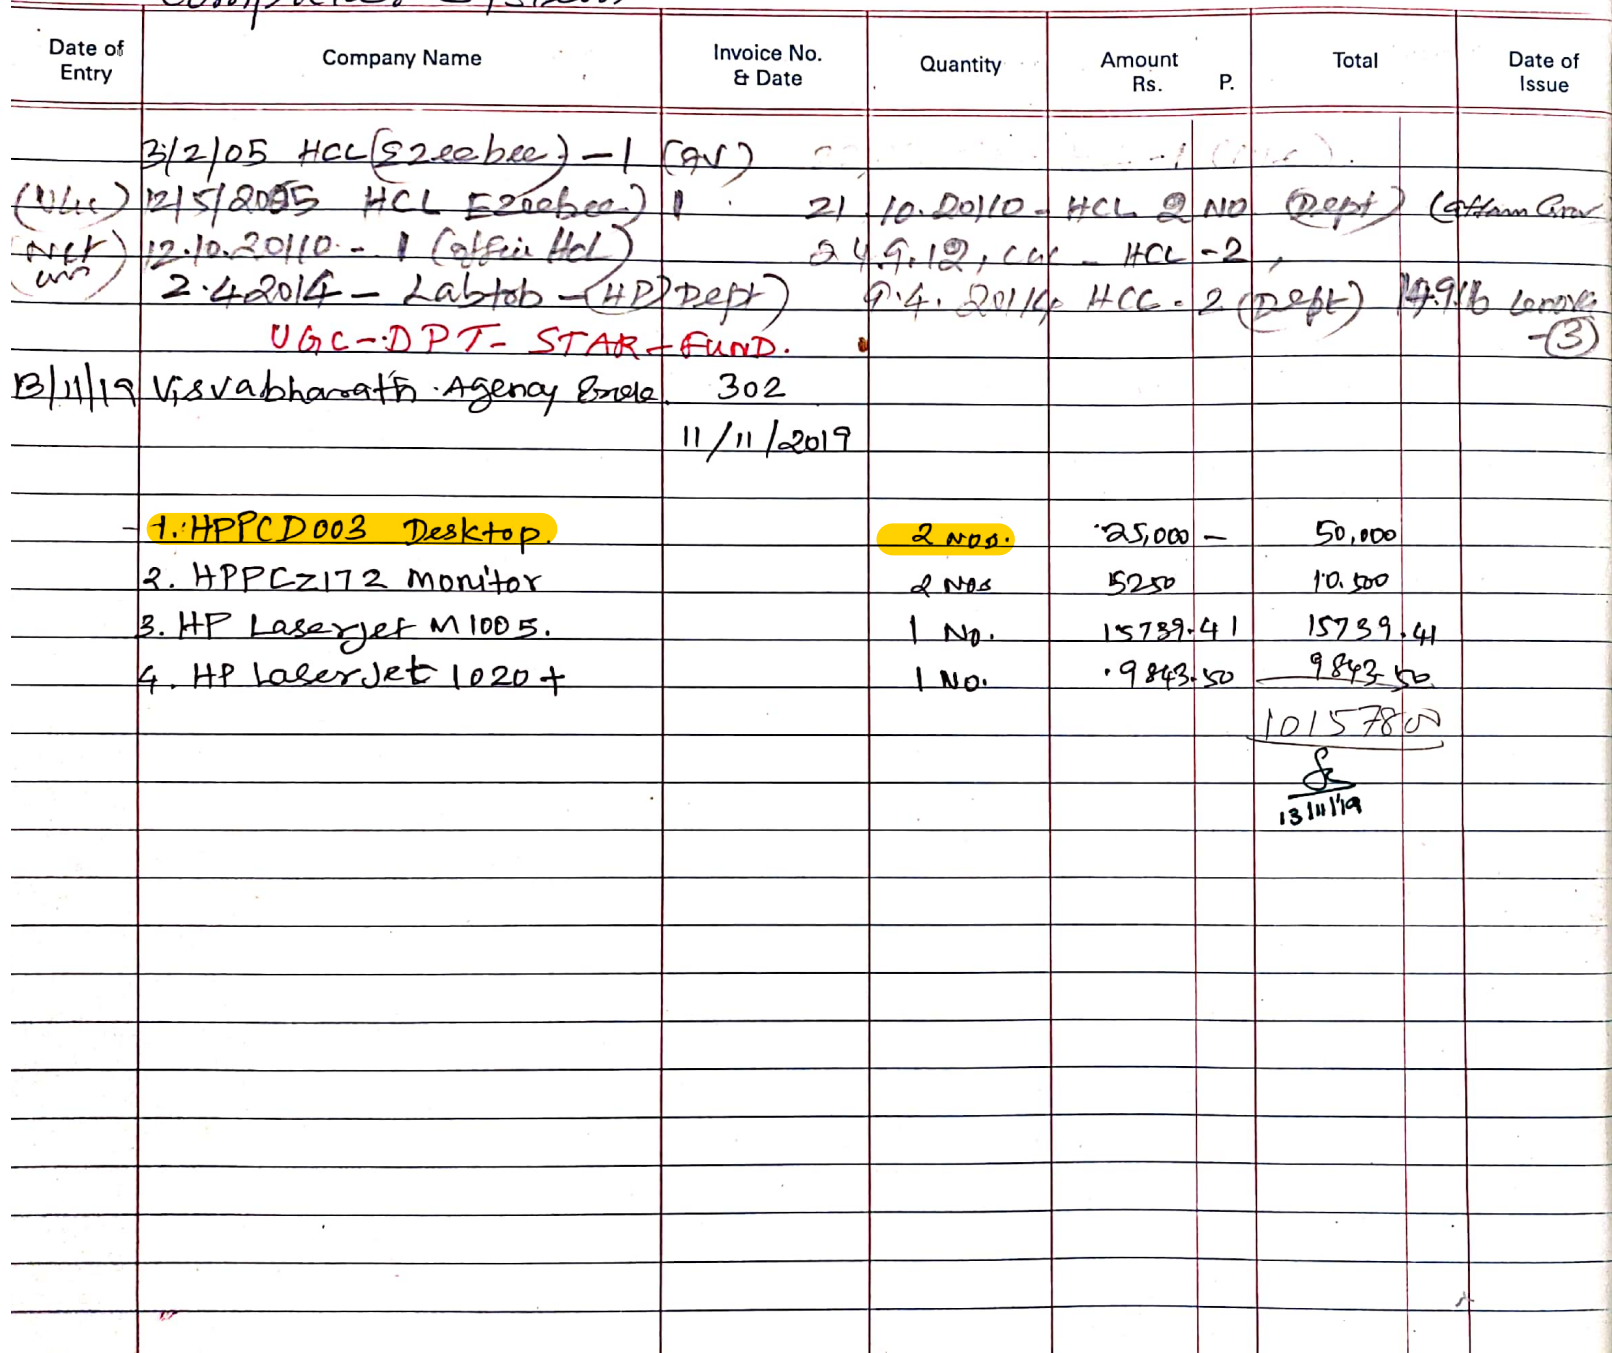 Computer System
Date of Entry Company Name Invoice No. & Date Quantity Amount Rs. P. Total Date of Issue
3/2/05 HCL (Ezeebee) - 1 (AV)
(UGC) 12/5/2005 HCL Ezeebee) 1 21.10.20110 - HCL 2 NO (Dept)
12.10.20110 - 1 (office Hcl) 24.9.12, - HCL - 2,
2.4.2014 - Labtob - (HP) Dept) 9.4.20114 HCL - 2 (Dept) 14.9.16 Lenovo
UGC - DPT - STAR - FUND. -(3)
13/11/19 Visvabharath Agency Erode. 302
11/11/2019
1. HPPCD003 Desktop. 2 Nos. 25,000 - 50,000
2. HPPCZ172 Monitor 2 Nos 5250 10.500
3. HP Laserjet M1005. 1 No. 15739.41 15739.41
4. HP LaserJet 1020+ 1 No. 9843.50 9843.50
10157800
13/11/19